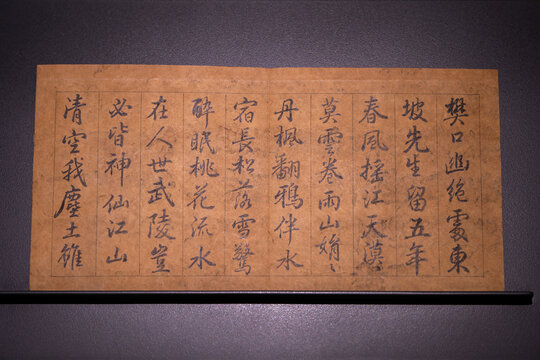 樊口幽絶處東
坡先生留五年
春風摇江天漠〻
莫雲卷雨山娟〻
丹楓翻鴉伴水
宿長松落雪驚
醉眠桃花流水
在人世武陵豈
必皆神仙江山
清空我塵土雖